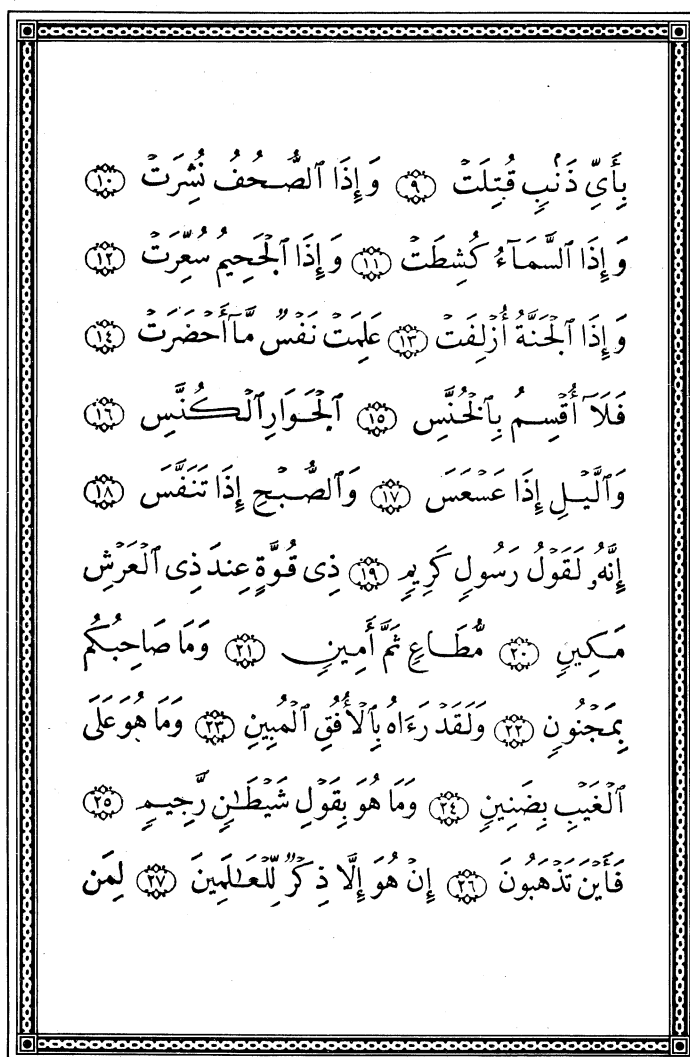 بِأَيِّ ذَنۢبٖ قُتِلَتۡ ۝٩ وَإِذَا ٱلصُّحُفُ نُشِرَتۡ ۝١٠
وَإِذَا ٱلسَّمَآءُ كُشِطَتۡ ۝١١ وَإِذَا ٱلۡجَحِيمُ سُعِّرَتۡ ۝١٢
وَإِذَا ٱلۡجَنَّةُ أُزۡلِفَتۡ ۝١٣ عَلِمَتۡ نَفۡسٞ مَّآ أَحۡضَرَتۡ ۝١٤
فَلَآ أُقۡسِمُ بِٱلۡخُنَّسِ ۝١٥ ٱلۡجَوَارِ ٱلۡكُنَّسِ ۝١٦
وَٱلَّيۡلِ إِذَا عَسۡعَسَ ۝١٧ وَٱلصُّبۡحِ إِذَا تَنَفَّسَ ۝١٨
إِنَّهُۥ لَقَوۡلُ رَسُولٖ كَرِيمٖ ۝١٩ ذِي قُوَّةٍ عِندَ ذِي ٱلۡعَرۡشِ
مَكِينٖ ۝٢٠ مُّطَاعٖ ثَمَّ أَمِينٖ ۝٢١ وَمَا صَاحِبُكُم
بِمَجۡنُونٖ ۝٢٢ وَلَقَدۡ رَءَاهُ بِٱلۡأُفُقِ ٱلۡمُبِينِ ۝٢٣ وَمَا هُوَ عَلَى
ٱلۡغَيۡبِ بِضَنِينٖ ۝٢٤ وَمَا هُوَ بِقَوۡلِ شَيۡطَٰنٖ رَّجِيمٖ ۝٢٥
فَأَيۡنَ تَذۡهَبُونَ ۝٢٦ إِنۡ هُوَ إِلَّا ذِكۡرٞ لِّلۡعَٰلَمِينَ ۝٢٧ لِمَن